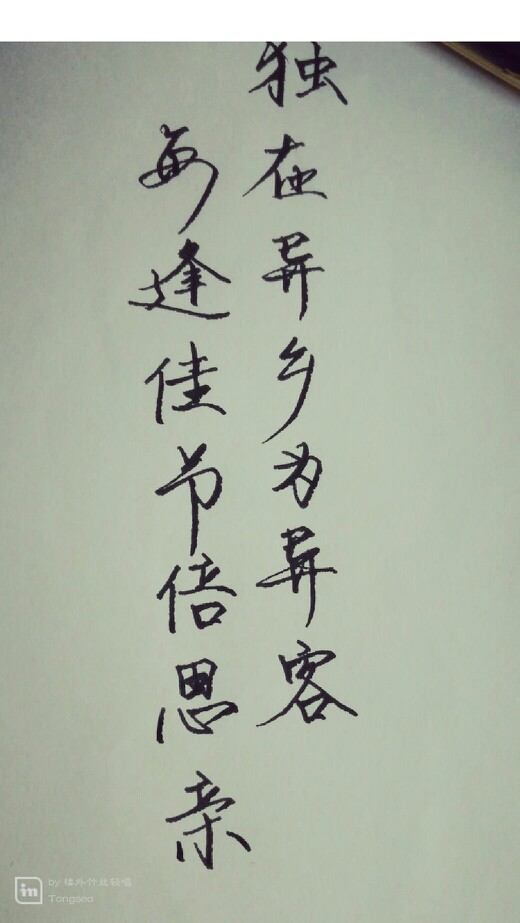 独在异乡为异客
每逢佳节倍思亲
in
by 楼外竹丝轻唱
Tongseo